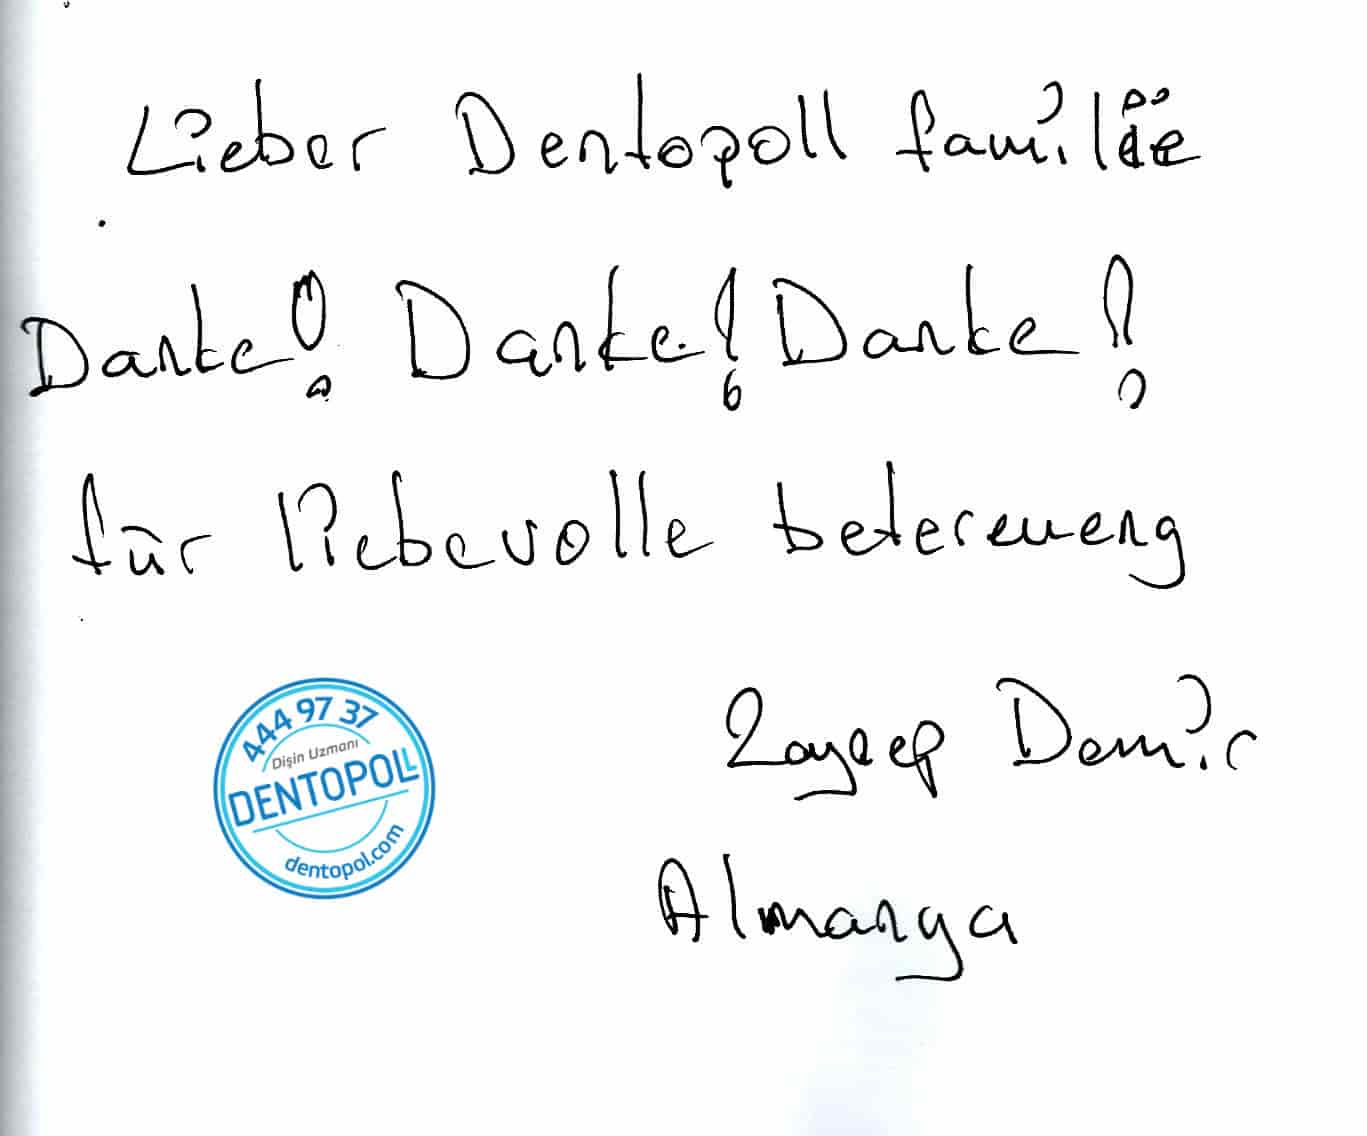 Lieber Dentopoll familie
Danke! Danke! Danke!
für liebevolle betereueng
444 97 37
Dişin Uzmanı
DENTOPOLL
dentopol.com
Zeynep Demir
Almanya